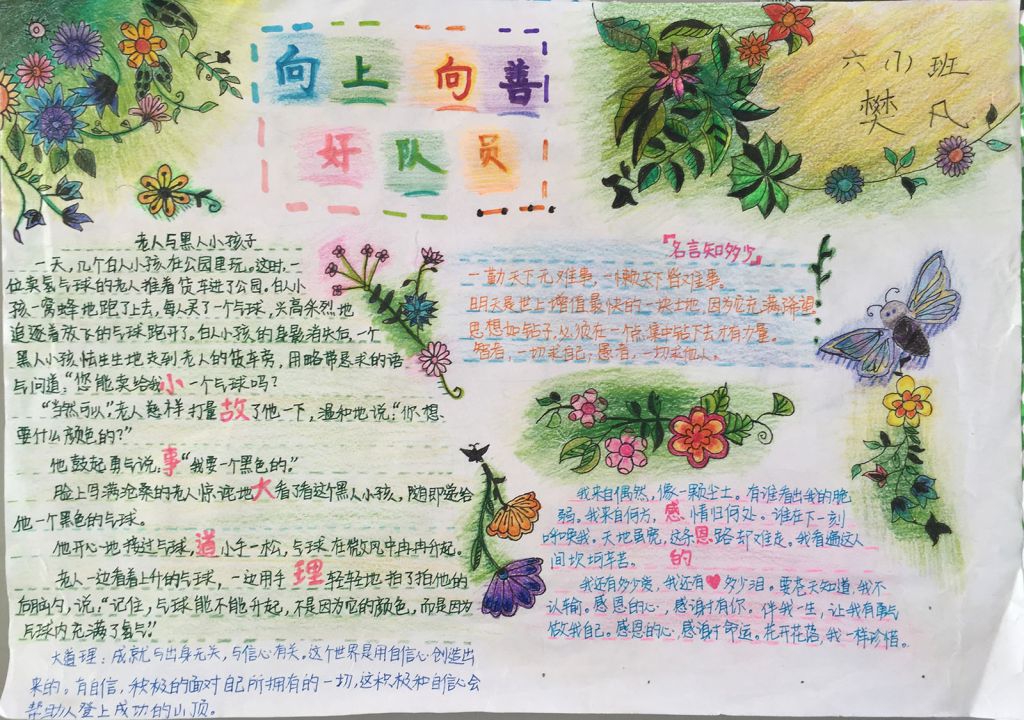 向上向善
好队员
六(1)班
樊凡
老人与黑人小孩子
一天,几个白人小孩在公园里玩。这时,一
位卖氢气球的老人推着货车进了公园。白人小
孩一窝蜂地跑了上去,每人买了一个气球,兴高采烈地
追逐着放飞的气球跑开了。白人小孩的身影消失后,一个
黑人小孩怯生生地走到老人的货车旁,用略带恳求的语
气问道:“您能卖给我一个气球吗?
“当然可以”,老人慈祥打量了他一下,温和地说:“你想
要什么颜色的?”
他鼓起勇气说:“我要一个黑色的。”
脸上写满沧桑的老人惊诧地看了看这个黑人小孩,随即递给
他一个黑色的气球。
他开心地接过气球,小手一松,气球在微风中冉冉升起。
老人一边看着上升的气球,一边用手轻轻地拍了拍他的
后脑勺,说:“记住,气球能不能升起,不是因为它的颜色,而是因为
气球内充满了氢气。”
小故事大道理
大道理:成就与出身无关,与信心有关。这个世界是用自信心创造出
来的。有自信,积极的面对自己所拥有的一切,这积极和自信心会
帮助人登上成功的山顶。
『名言知多少』
一勤天下无难事,一懒天下皆难事。
明天是世上增值最快的一块土地,因为它充满了希望
思想如钻子,必须在一个点集中钻下去才有力量。
智者,一切求自己;愚者,一切求他人。
我来自偶然,像一颗尘土。有谁看出我的脆
弱。我来自何方,我情归何处。谁在下一刻
呼唤我。天地虽宽,这条路却难走。我看遍这人
间坎坷辛苦。
感恩的❤
我还有多少爱,我还有多少泪。要苍天知道,我不
认输。感恩的心,感谢有你。伴我一生,让我有勇气
做我自己。感恩的心,感谢命运。花开花落,我一样珍惜。